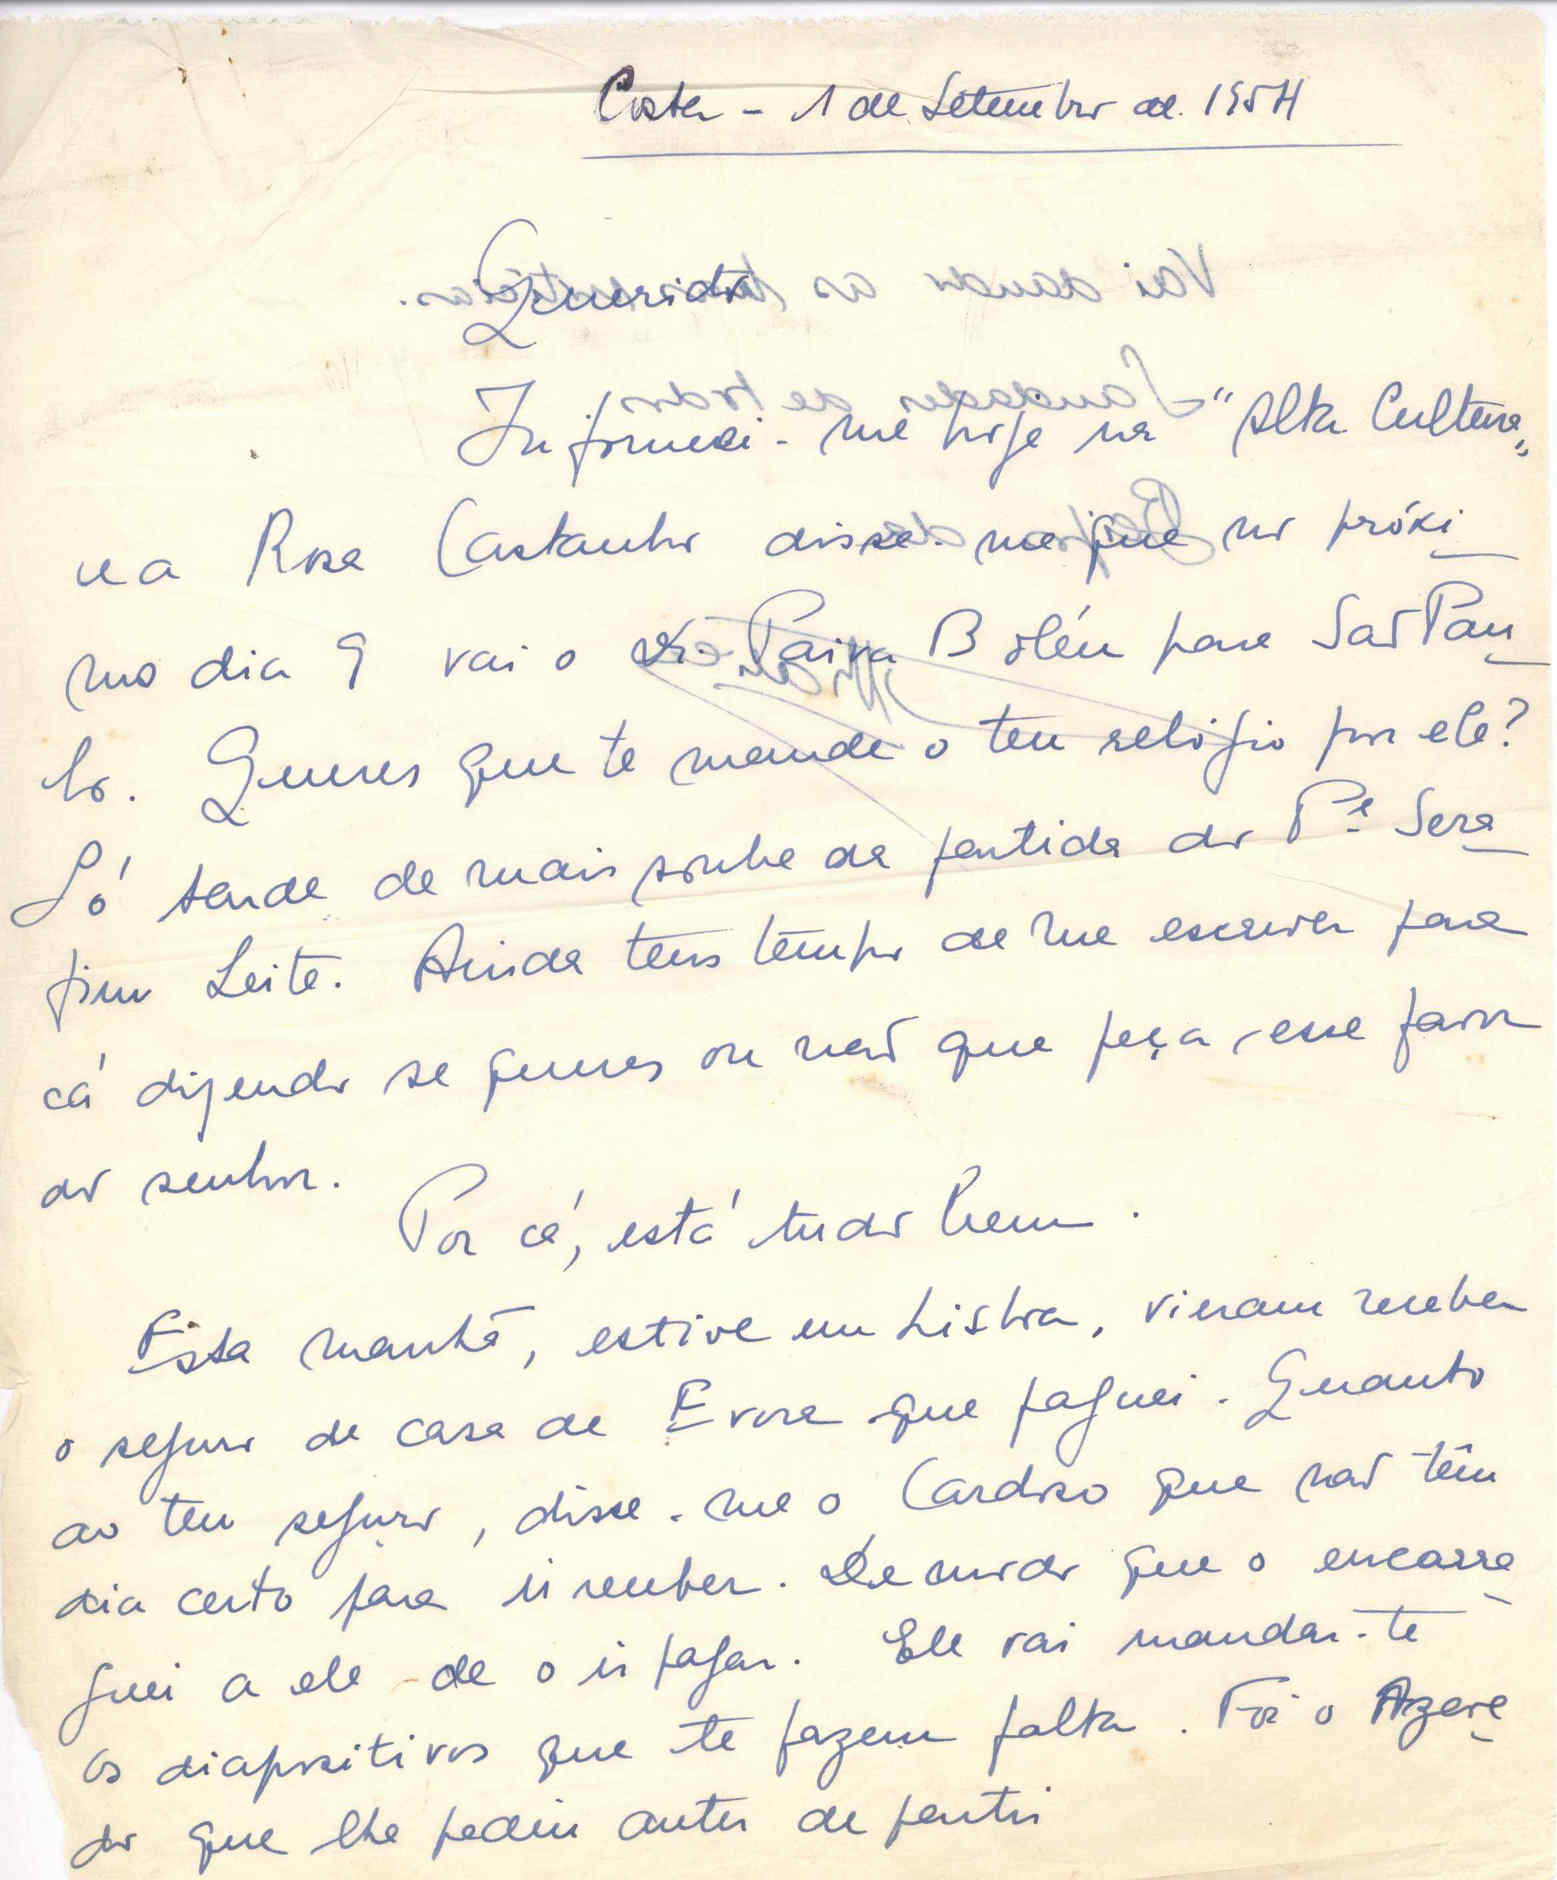 Costa - 1 de Setembro de 1954
Querido
Informei-me hoje na "Alta Cultura„
e a Rosa Castanho disse-me que no próxi
mo dia 9 vai o Dr. Paiva Boléu para São Pau
lo. Queres que te mande o teu relógio por ele?
Só tarde de mais soube da partida do Pe Sera
fim Leite. Ainda tens tempo de me escrever para
cá dizendo se queres ou não que peça esse favor
ao senhor.
Por cá, está tudo bem.
Esta manhã, estive em Lisboa, vieram receber
o seguro de casa de Evora que paguei. Quanto
ao teu seguro, disse-me o Cardoso que não têm
dia certo para ir receber. De modo que o encarre
guei a ele de o ir pagar. Ele vai mandar-te
os diapositivos que te fazem falta. Foi o Azeve
do que lhe pediu antes de partir
Vai dando as tuas notícias.
Saudades de todos
Beijos da